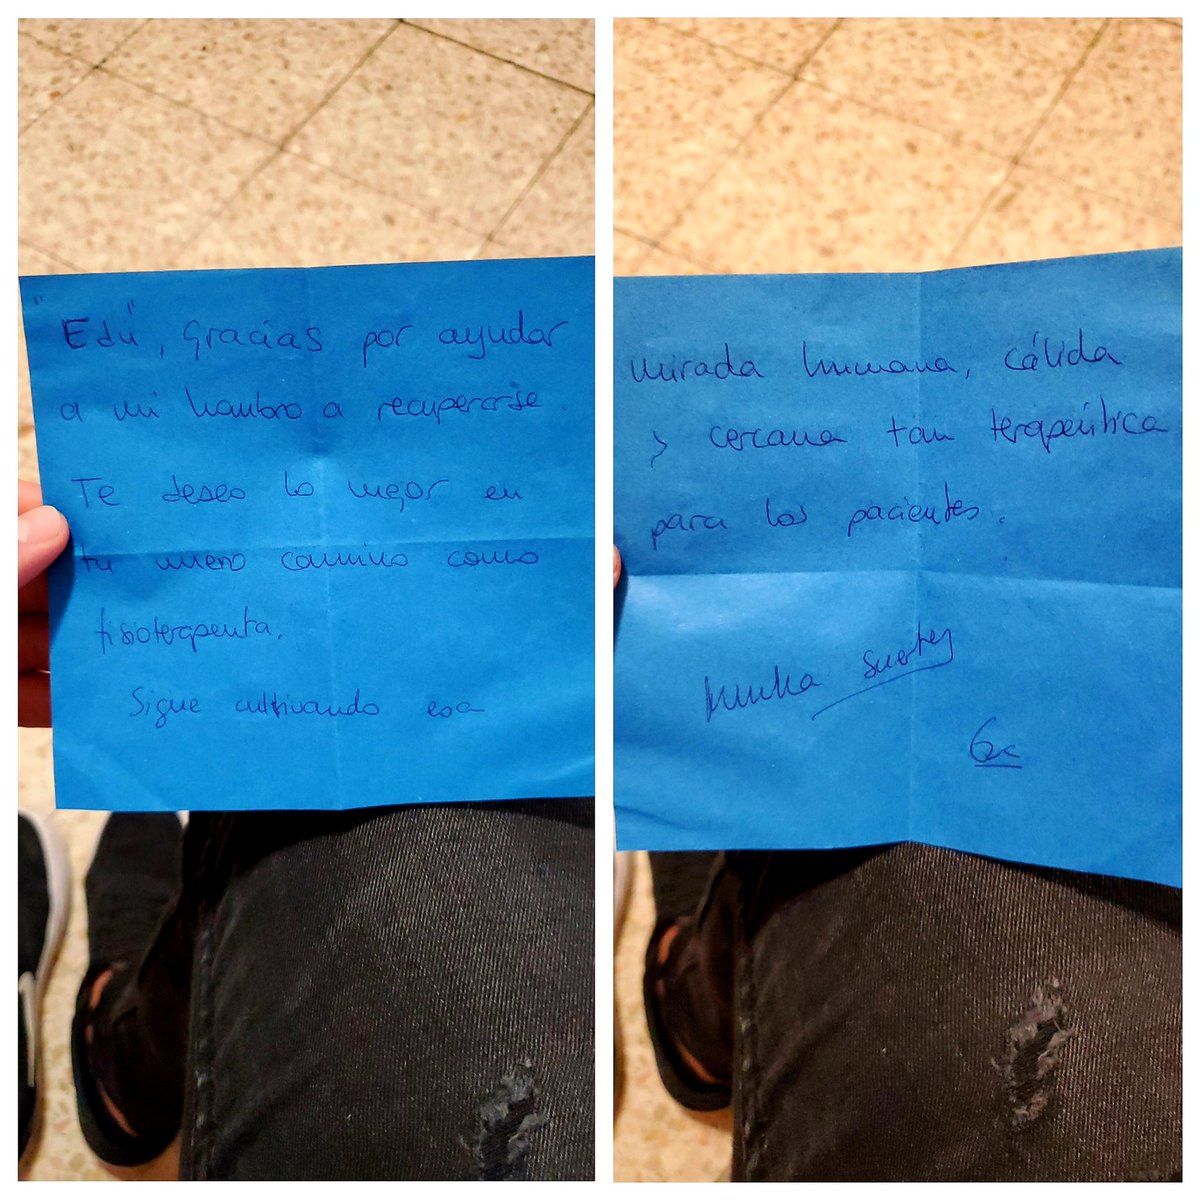 "Edu", gracias por ayudar
a mi hombro a recuperarse.
Te deseo lo mejor en
tu nuevo camino como
fisioterapeuta.
Sigue cultivando esa
mirada humana, cálida
y cercana tan terapéutica
para los pacientes.
Mucha suerte